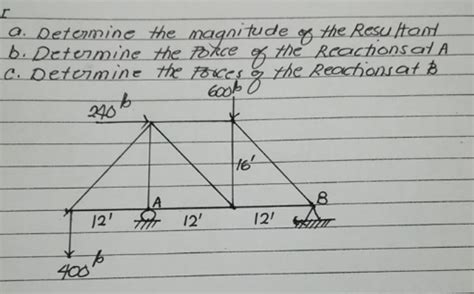 I
a. Determine the magnitude of the Resultant
b. Determine the Force of the Reactions at A
c. Determine the Forces of the Reactions at B
600 lb
240 lb
16'
A
B
12'
12'
12'
400 lb